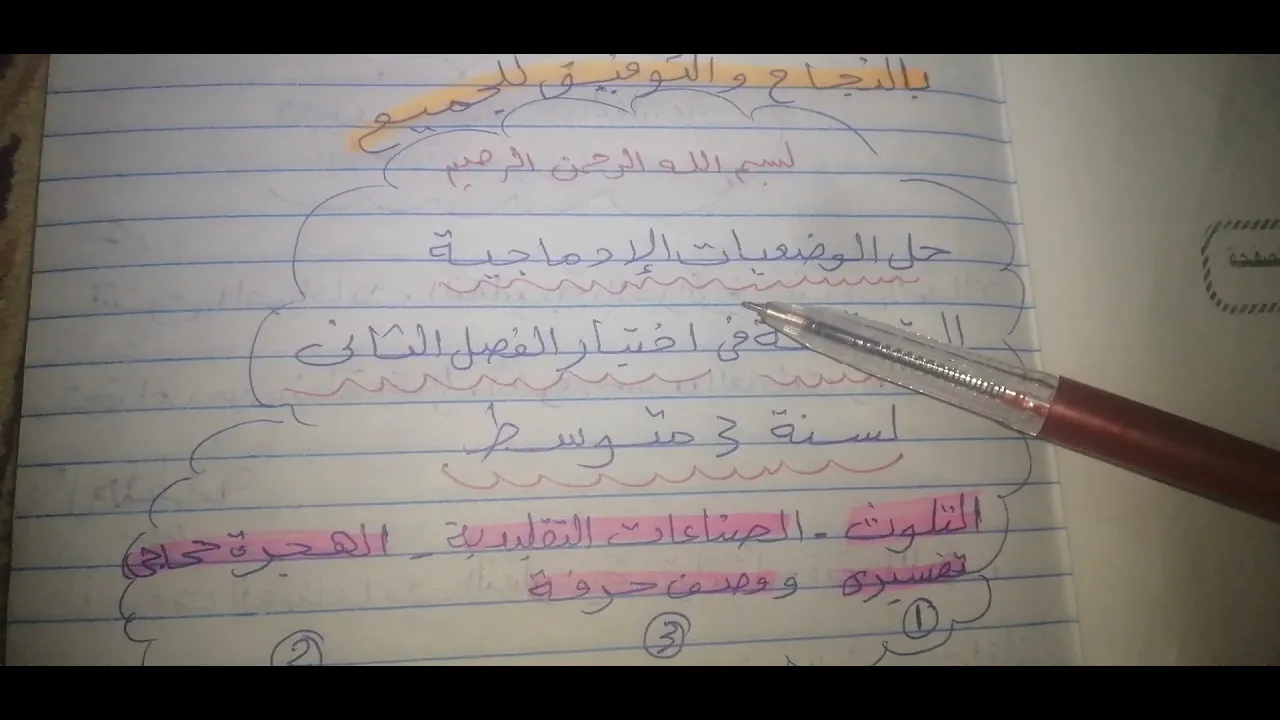 بالنجاح والتوفيق للجميع
بسم الله الرحمن الرحيم
حل الوضعيات الإدماجية
في اختبار الفصل الثاني
لسنة 3 متوسط
التلوث - الصناعات التقليدية - الهجرة حجاجي
تفسيري ووصف حرفة
① ③ ②
الصفحة